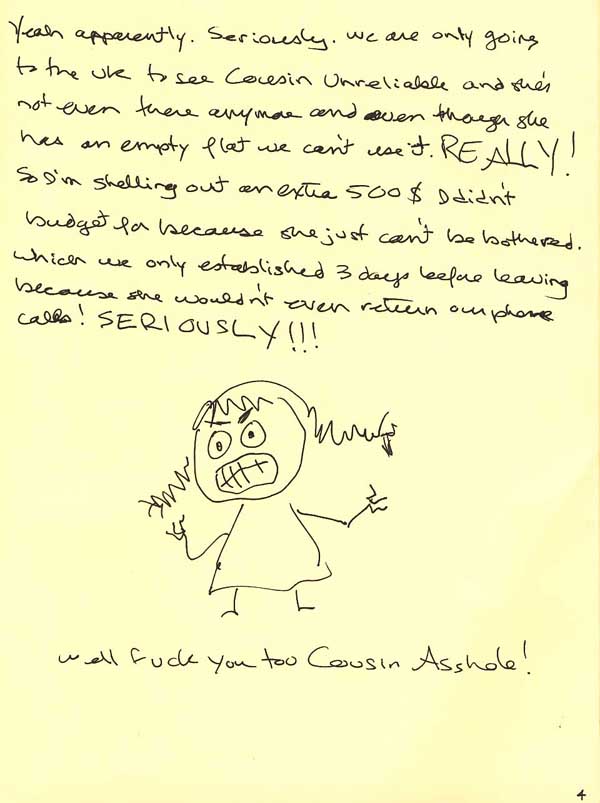 Yeah apparently. Seriously. We are only going
to the UK to see Cousin Unreliable and she's
not even there anymore and even though she
has an empty flat we can't use it. REALLY!
So I'm shelling out an extra 500$ I didn't
budget for because she just can't be bothered.
Which we only established 3 days before leaving
because she wouldn't even return our phone
calls! SERIOUSLY!!!
Well Fuck You too Cousin Asshole!
4